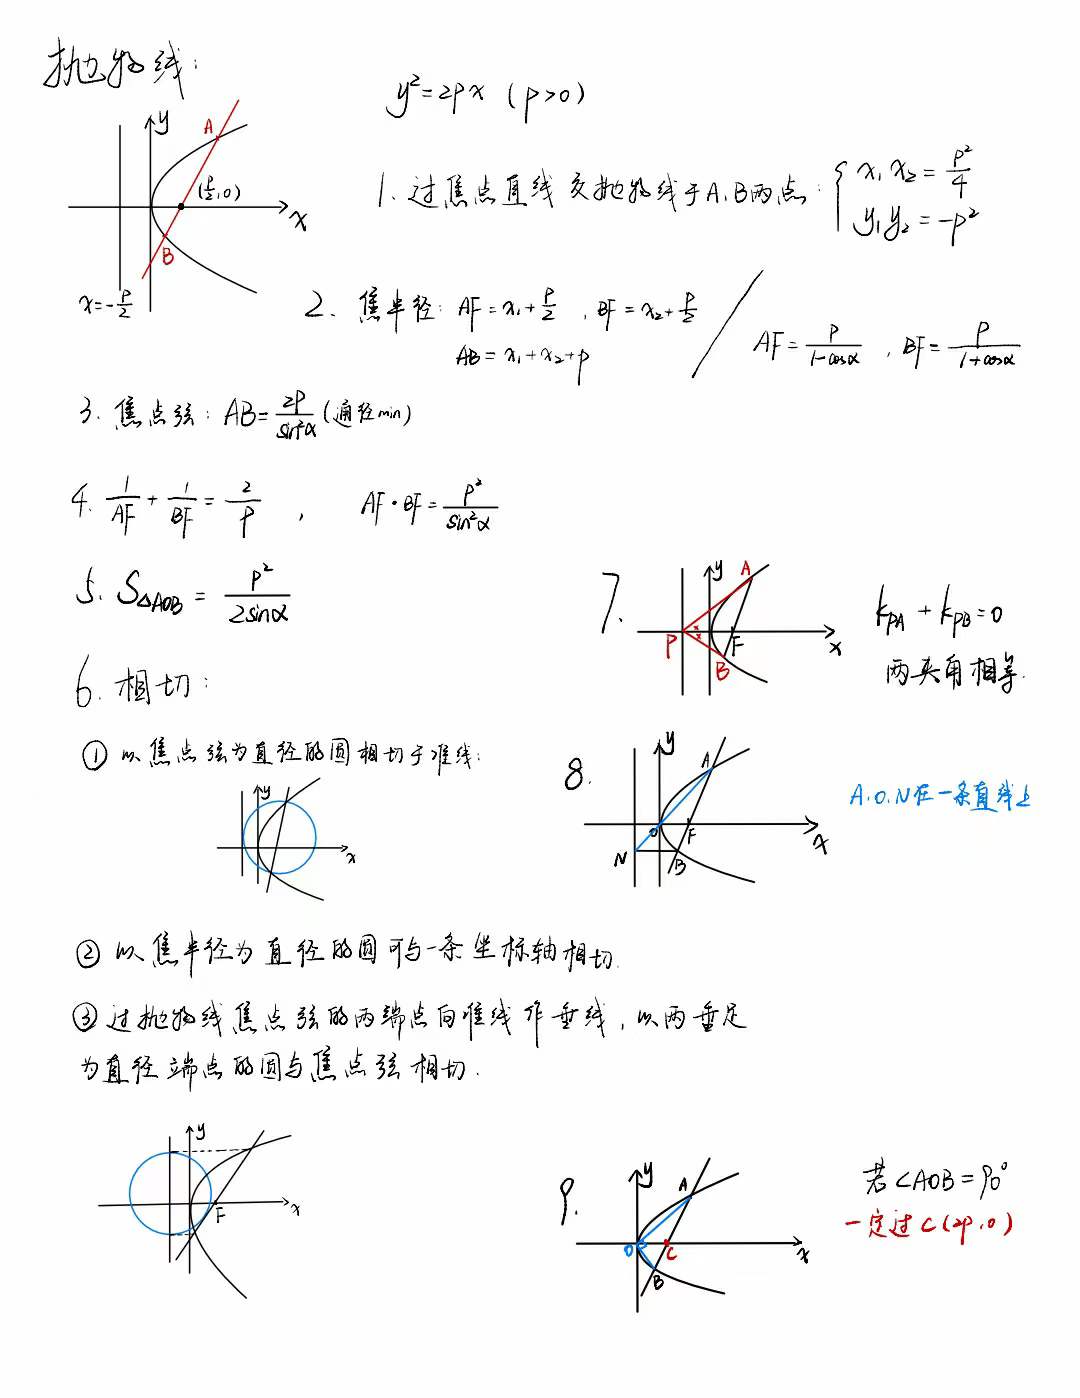 抛物线:
y²=2px (p>0)
y
A
(p/2,0)
x
B
x=-p/2
1. 过焦点直线交抛物线于A.B两点: { x₁x₂=p²/4
y₁y₂=-p²
2. 焦半径: AF=x₁+p/2 , BF=x₂+p/2
AB=x₁+x₂+p
AF=p/(1-cosα) , BF=p/(1+cosα)
3. 焦点弦: AB=2p/sin²α (通径min)
4. 1/AF + 1/BF = 2/p , AF·BF=p²/sin²α
5. S△AOB = p²/2sinα
6. 相切:
① 以焦点弦为直径的圆相切于准线:
y
x
② 以焦半径为直径的圆可与一条坐标轴相切.
③ 过抛物线焦点弦的两端点向准线作垂线, 以两垂足
为直径端点的圆与焦点弦相切.
y
F
x
7.
y
A
P
F
B
x
k_PA + k_PB = 0
两夹角相等.
8.
y
A
O
F
N
B
x
A.O.N在一条直线上
9.
y
A
O
C
B
x
若∠AOB=90°
一定过C(2p,0)